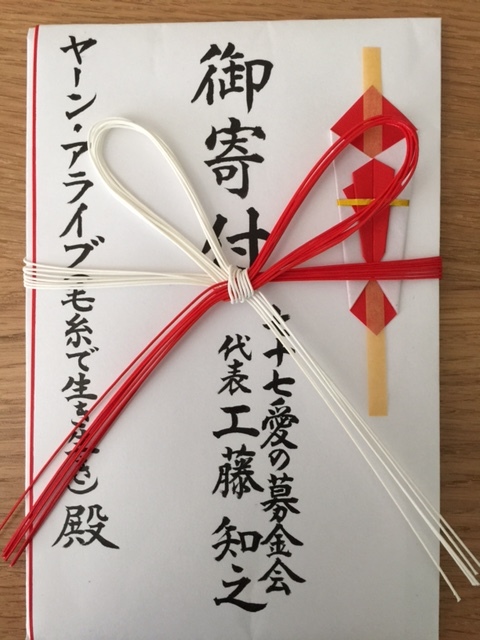 御寄付
十七愛の募金会
代表 工藤 知之
ヤーン・アライブ 毛糸で生き き) 殿